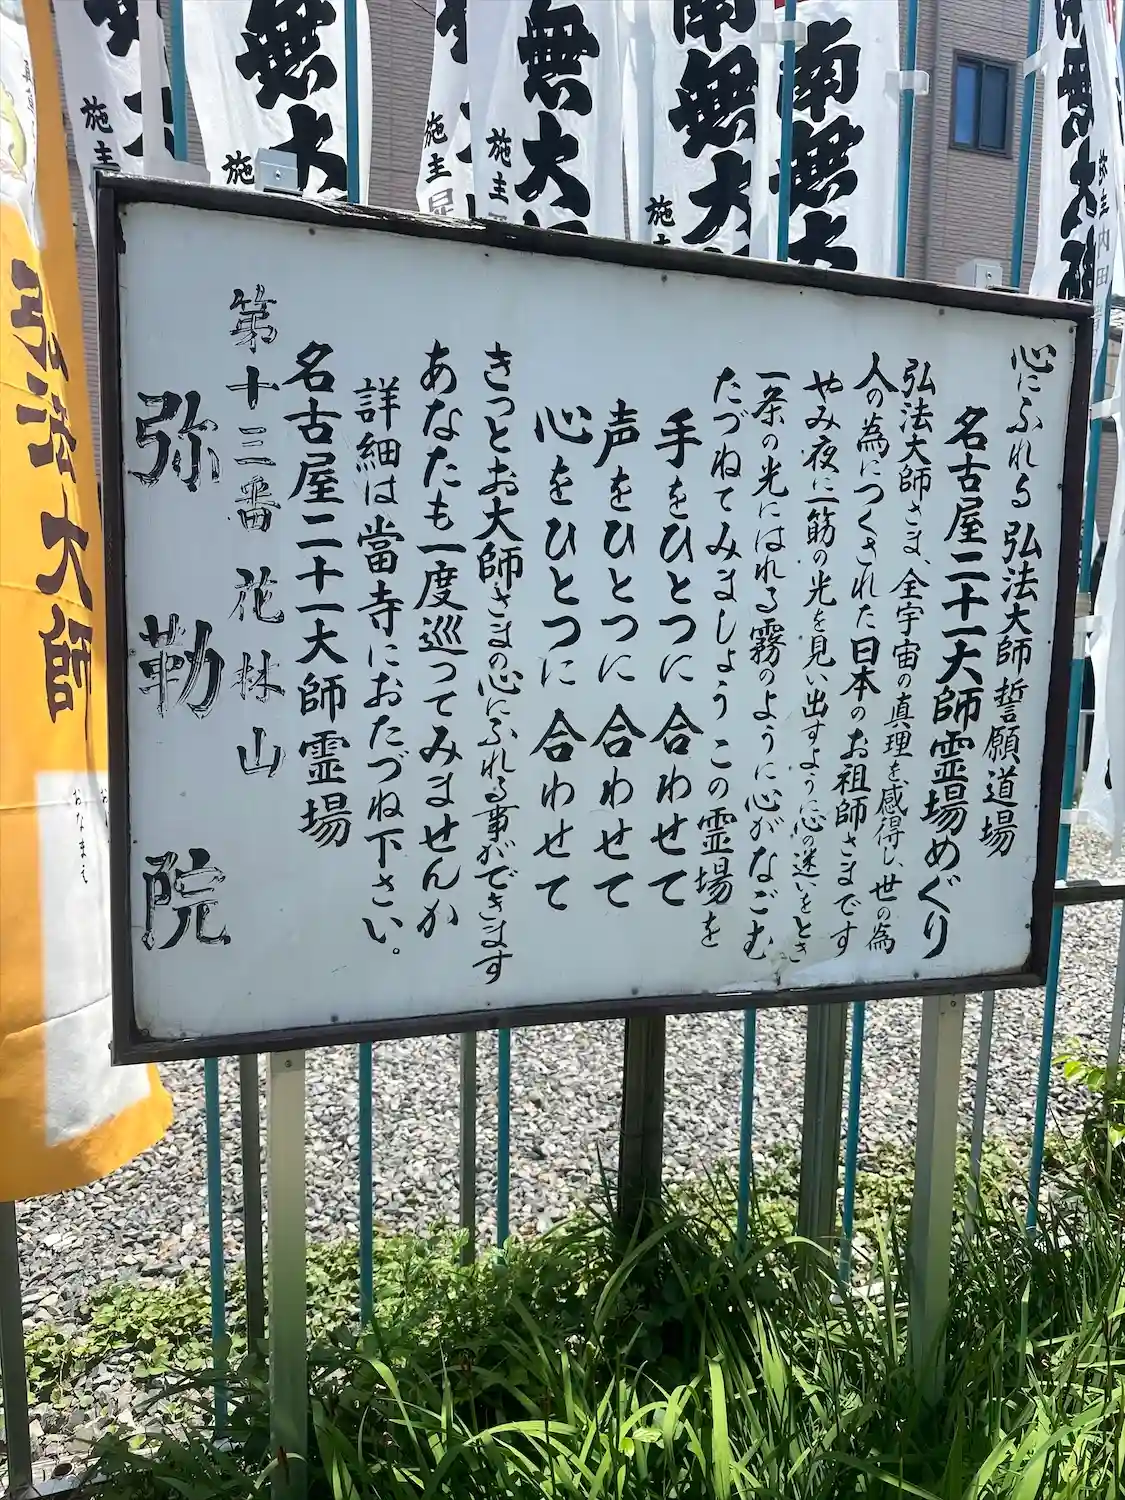 心にふれる 弘法大師 誓願道場
名古屋二十一大師霊場めぐり
弘法大師さま、全宇宙の真理を感得し、世の為
人の為につくされた日本のお祖師さまです
やみ夜に一筋の光を見い出すように心の迷いをとき
一条の光にはれる霧のように心がなごむ
たづねてみましょうこの霊場を
手をひとつに合わせて
声をひとつに合わせて
心をひとつに合わせて
きっとお大師さまの心にふれる事ができます
あなたも一度巡ってみませんか
詳細は當寺におたづね下さい。
名古屋二十一大師霊場
第十三番 花林山
弥勒院
弘法大師
おなまえ
南無大
施主
南無大
施主
無大
施主
無大
施主
施主
無大師
施主内田